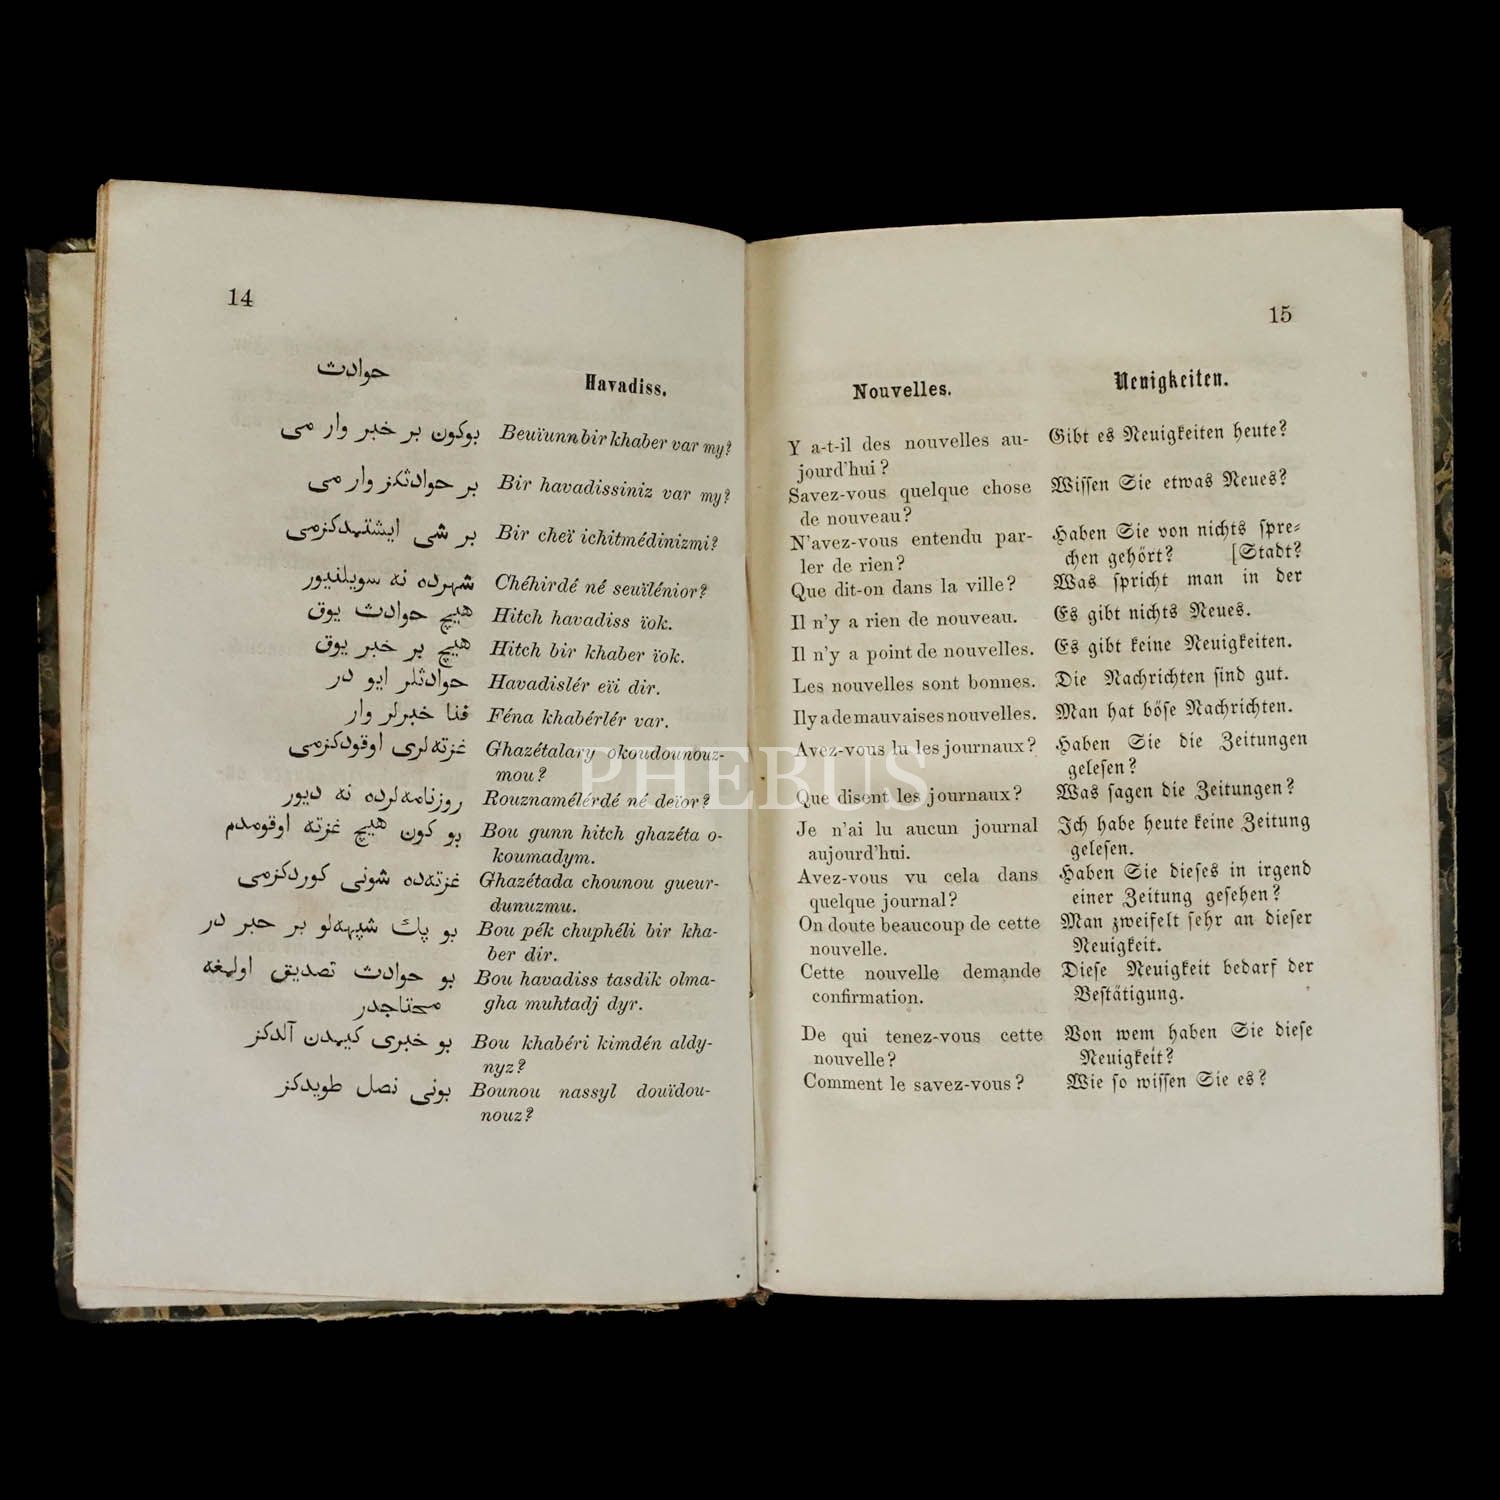 14
حوادث
بوكون بر خبر وار می
بر حوادثكز وار می
بر شی ايشتمدكزمی
شهرده نه سويلنيور
هيچ حوادث يوق
هيچ بر خبر يوق
حوادثلر ايو در
فنا خبرلر وار
غزته‌لری اوقودكزمی
روزنامه‌لرده نه ديور
بو كون هيچ غزته اوقومدم
غزته‌ده شونی كوردكزمی
بو پك شپهه‌لو بر خبر در
بو حوادث تصديق اولمغه
محتاجدر
بو خبری كيمدن آلدكز
بونی نصل طويدكز
Havadiss.
Beuïunn bir khaber var my?
Bir havadissiniz var my?
Bir cheï ichitmédinizmi?
Chéhirdé né seuïlénior?
Hitch havadiss ïok.
Hitch bir khaber ïok.
Havadislér eïi dir.
Féna khabérlér var.
Ghazétalary okoudounouz-
mou?
Rouznamélérdé né deïor?
Bou gunn hitch ghazéta o-
koumadym.
Ghazétada chounou gueur-
dunuzmu.
Bou pék chuphéli bir kha-
ber dir.
Bou havadiss tasdik olma-
gha muhtadj dyr.
Bou khabéri kimdén aldy-
nyz?
Bounou nassyl douïdou-
nouz?
15
Nouvelles.
Y a-t-il des nouvelles au-
jourd'hui?
Savez-vous quelque chose
de nouveau?
N'avez-vous entendu par-
ler de rien?
Que dit-on dans la ville?
Il n'y a rien de nouveau.
Il n'y a point de nouvelles.
Les nouvelles sont bonnes.
Il y a de mauvaises nouvelles.
Avez-vous lu les journaux?
Que disent les journaux?
Je n'ai lu aucun journal
aujourd'hui.
Avez-vous vu cela dans
quelque journal?
On doute beaucoup de cette
nouvelle.
Cette nouvelle demande
confirmation.
De qui tenez-vous cette
nouvelle?
Comment le savez-vous?
Neuigkeiten.
Gibt es Neuigkeiten heute?
Wissen Sie etwas Neues?
Haben Sie von nichts spre-
chen gehört? [Stadt?
Was spricht man in der
Es gibt nichts Neues.
Es gibt keine Neuigkeiten.
Die Nachrichten sind gut.
Man hat böse Nachrichten.
Haben Sie die Zeitungen
gelesen?
Was sagen die Zeitungen?
Ich habe heute keine Zeitung
gelesen.
Haben Sie dieses in irgend
einer Zeitung gesehen?
Man zweifelt sehr an dieser
Neuigkeit.
Diese Neuigkeit bedarf der
Bestätigung.
Von wem haben Sie diese
Neuigkeit?
Wie so wissen Sie es?
PHEBUS